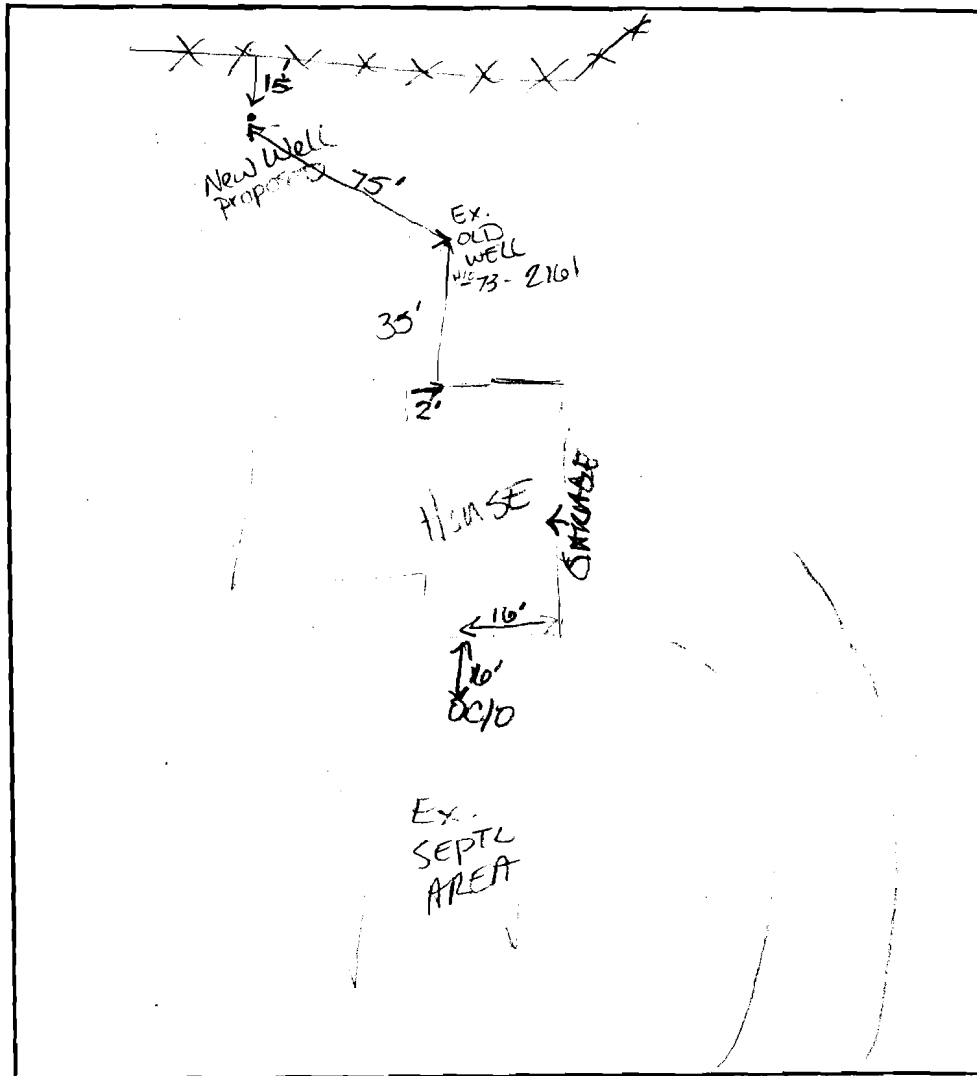 15'
New Well
proposed
75'
Ex.
OLD
WELL
73-2161
35'
2'
HOUSE
GARAGE
16'
16'
OC/O
Ex.
SEPTC
AREA